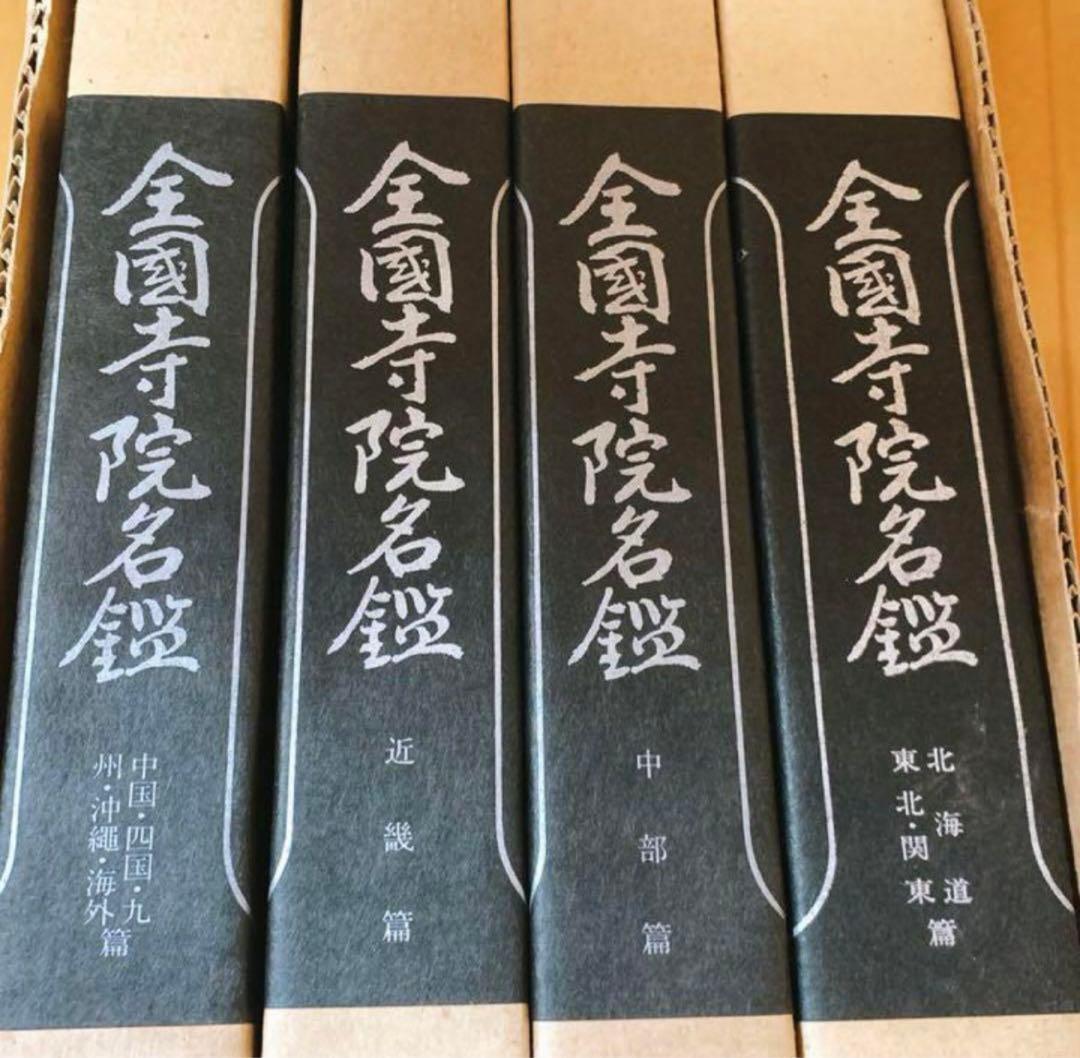 全國寺院名鑑
北海道
東北・関東
篇
全國寺院名鑑
中部篇
全國寺院名鑑
近畿篇
全國寺院名鑑
中国・四国・九
州・沖繩・海外
篇